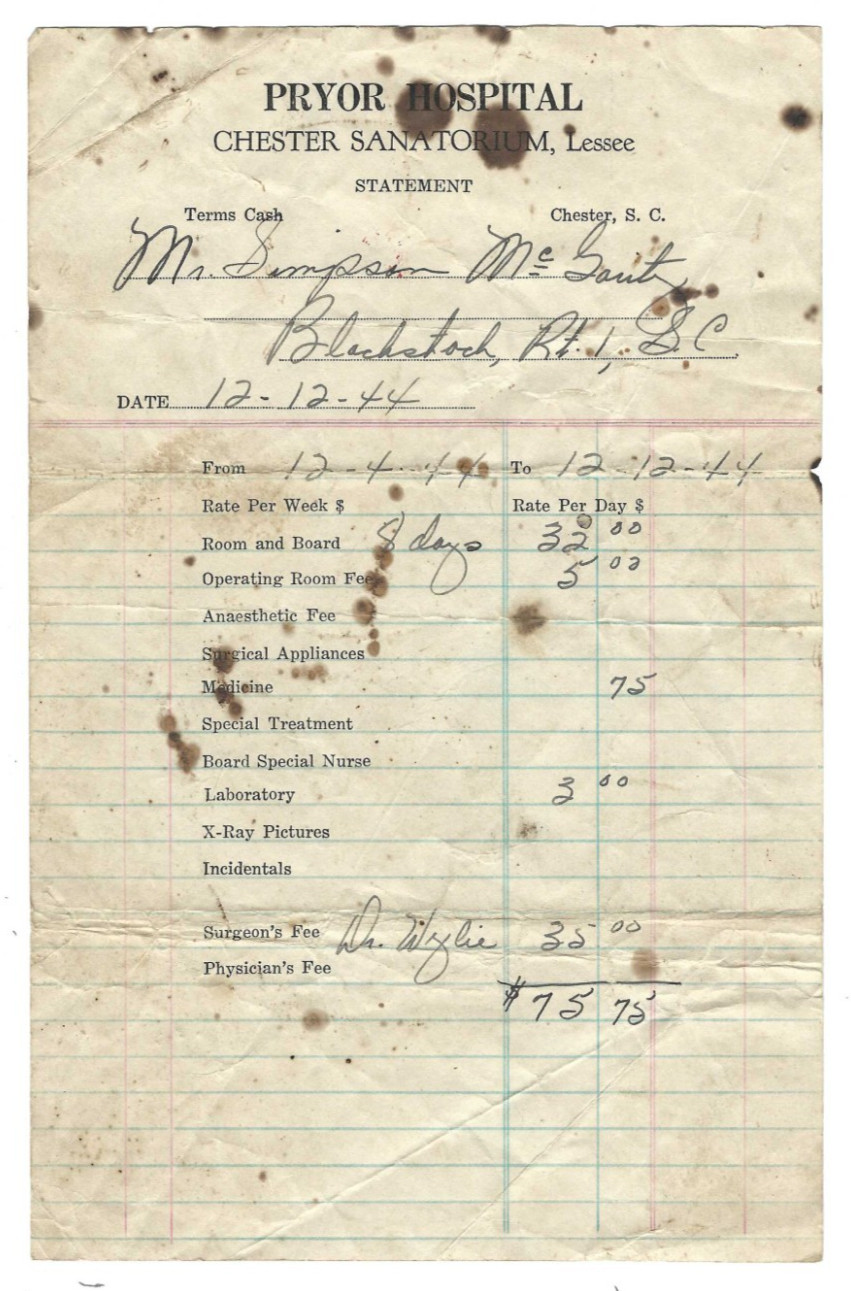 PRYOR HOSPITAL
CHESTER SANATORIUM, Lessee
STATEMENT
Terms Cash Chester, S. C.
Mr. Simpson Mc
Blackstock, Rt. 1, S.C.
DATE 12-12-44
From 12-4-44 To 12-12-44
Rate Per Week $ Rate Per Day $
Room and Board 8 days 32 00
Operating Room Fee 5 00
Anaesthetic Fee
Surgical Appliances
Medicine 75
Special Treatment
Board Special Nurse
Laboratory 3 00
X-Ray Pictures
Incidentals
Surgeon's Fee Dr. Wylie 35 00
Physician's Fee
$75 75